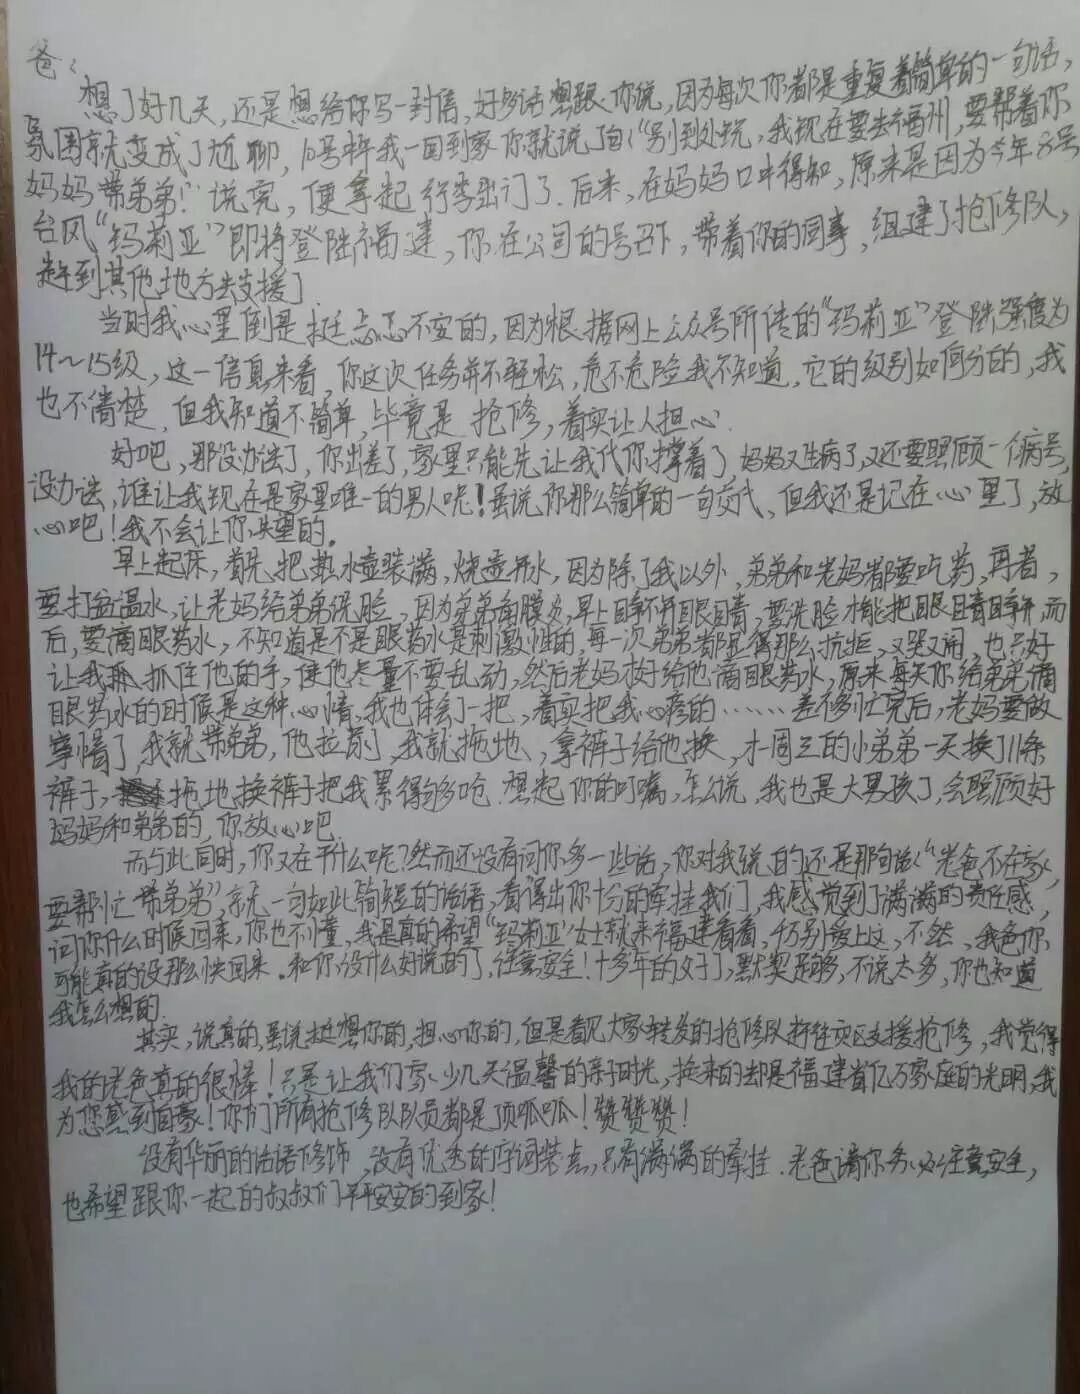 爸:
想了好几天,还是想给你写一封信,好多话想跟你说,因为每次你都是重复着简单的一句话,
氛围就变成了尬聊,10号中午我一回到家你就说了句:“别到处玩,我现在要去福州,要帮着你
妈妈带弟弟!”说完,便拿起行李出门了.后来,在妈妈口中得知,原来是因为今年8号
台风“玛莉亚”即将登陆福建,你在公司的号召下,带着你的同事,组建了抢修队,
赶到其他地方去支援了
当时我心里倒是挺忐忑不安的,因为根据网上公众号所传的“玛莉亚”登陆强度为
14~15级,这一信息来看,你这次任务并不轻松,危不危险我不知道,它的级别如何分的,我
也不清楚,但我知道不简单,毕竟是抢修,着实让人担心.
好吧,那没办法了,你出差了,家里只能先让我代你撑着了,妈妈又生病了,又还要照顾一个病号,
没办法,谁让我现在是家里唯一的男人呢!虽说你那么简单的一句交代,但我还是记在心里了,放
心吧!我不会让你失望的。
早上起床,首先把热水壶装满,烧壶开水,因为除了我以外,弟弟和老妈都要吃药,再者,
要打盆温水,让老妈给弟弟洗脸,因为弟弟角膜炎,早上睁不开眼睛,要洗脸才能把眼睛睁开,而
后,要滴眼药水,不知道是不是眼药水是刺激性的,每一次弟弟都显得那么抗拒,又哭又闹,也只好
让我抓住他的手,使他尽量不要乱动,然后老妈才好给他滴眼药水,原来每天你给弟弟滴
眼药水的时候是这种心情,我也体会了一把,着实把我心疼的……差不多忙完后,老妈要做
家务了,我就带弟弟,他拉尿,我就拖地,拿裤子给他换,才一周三的小弟弟一天换了11条
裤子,拖地换裤子把我累得够呛.想起你的叮嘱,怎么说,我也是大男孩了,会照顾好
妈妈和弟弟的,你放心吧.
而与此同时,你又在干什么呢?然而还没有问你多一些话,你对我说的还是那句话:“老爸不在家,
要帮忙带弟弟”,就一句如此简短的话语,看得出你十分的牵挂我们,我感觉到了满满的责任感,
问你什么时候回来,你也不懂,我是真的希望“玛莉亚”女士就来福建看看,千万别爱上这,不然,我爸你
可能真的没那么快回来.和你没什么好说的了,注意安全!十多年的父子了,默契足够,不说太多,你也知道
我怎么想的.
其实,说真的,虽说挺想你的,担心你的,但是看见大家转发的抢修队赶往灾区支援抢修,我觉得
我的老爸真的很棒!只是让我们家少几天温馨的亲子时光,换来的却是福建省亿万家庭的光明,我
为您感到自豪!你们所有抢修队队员都是顶呱呱!赞赞赞!
没有华丽的话语修饰,没有优秀的序词装点,只有满满的牵挂.老爸请你务必注意安全,
也希望跟你一起的叔叔们平平安安的到家!